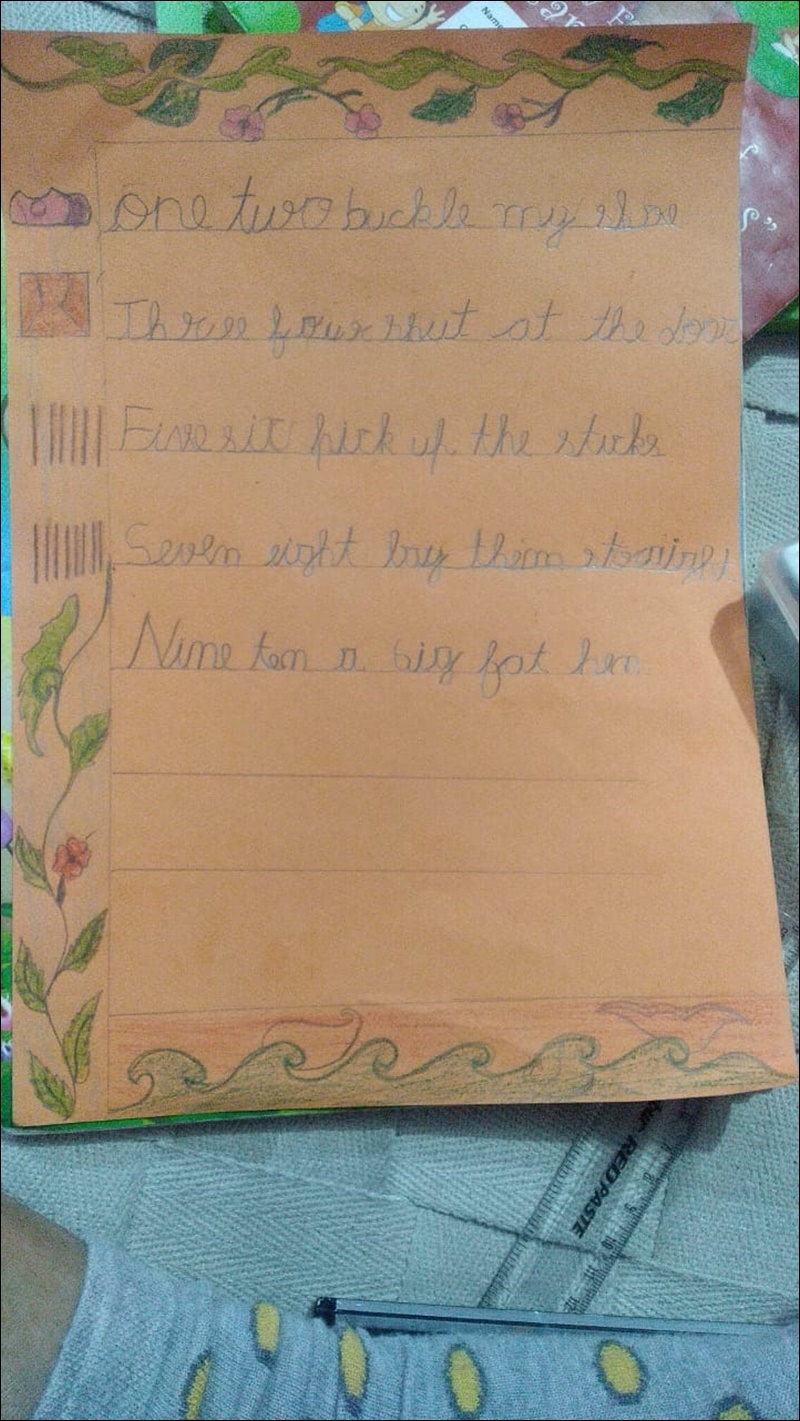 one two buckle my shoe
Three four shut at the door
Five sit pick up the sticks
Seven eight lay them
Nine ten a big fat hen
Name
RED PASTE